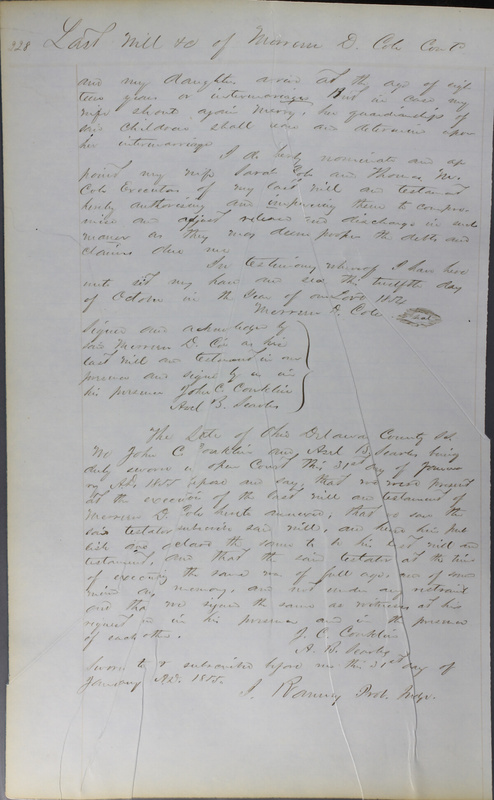 228 Last Will &c of Morrem D. Cole Con't
and my daughter arives at the age of eigh
teen years or intermarriage But in case my
wife should again Marry, her guardianship of
said Children shall cease and determine upon
her intermarriage
I do hereby nominate and ap
point my wife Sarah Cole and Thomas W.
Cole Executors of my last will and testament
hereby authorizing and impowering them to compro-
mise and adjust release and discharge in such
manner as they may deem proper the debts and
claims due me
In testimony whereof I have here
unto set my hand and seal this twelfth day
of October in the Year of our Lord 1852
Morrem D. Cole Seal
Signed and acknowledged by
said Morrem D. Cole as his
last will and testament in our
presence and signed by us in
his presence John C. Conklin
Axel B. Searles
The State of Ohio Delaware County SS.
We John C Conklin and Axel B. Searles being
duly sworn in open Court this 31st day of Januar
y AD. 1855 depose and say, that we were present
at the execution of the last will and testament of
Morrem D. Cole hereto annexed, that we saw the
said testator subscribe said will, and heard him pub
lish and declare the same to be his last will and
testament, and that the said testator at the time
of executing the same was of full age, and of sound
mind and memory, and not under any restraint
and that we signed the same as witnesses at his
request and in his presence and in the presence
of each other. J. C. Conklin
A. B. Searles
Sworn to & subscribed before me this 31st day of
January AD. 1855.
J. Ranney Prob. Judge.